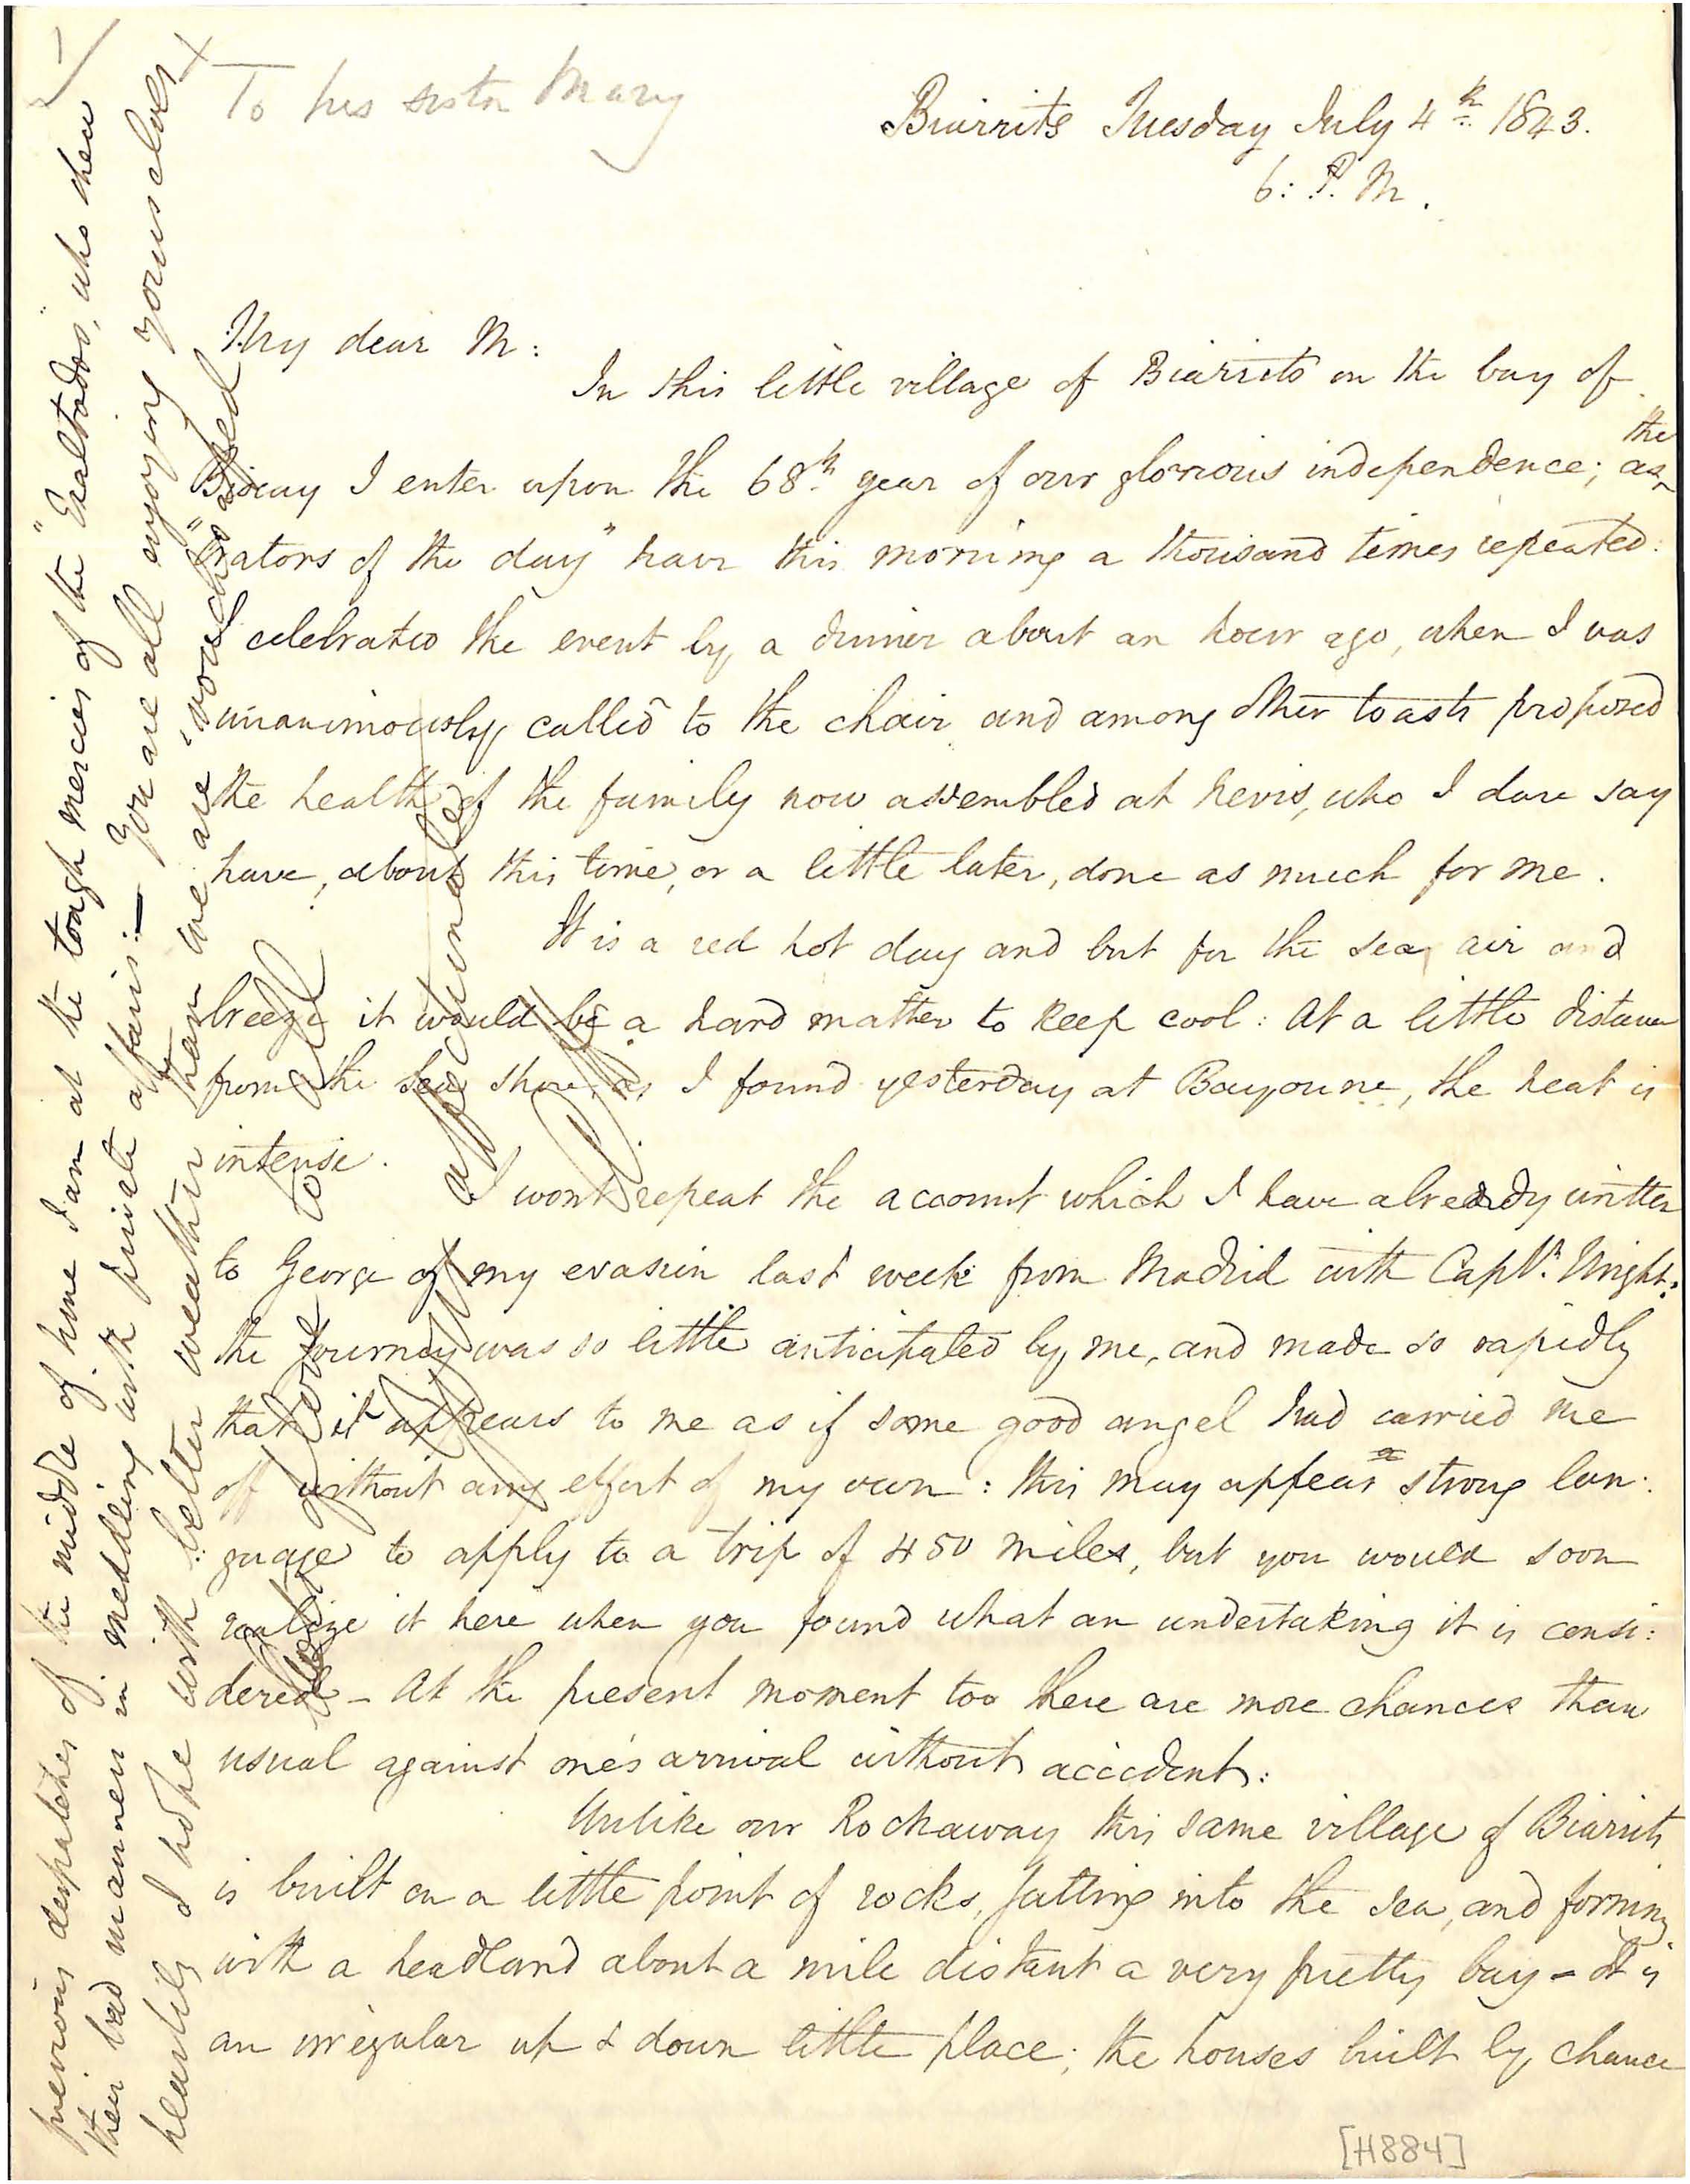 To his sister Mary
Biarrits Tuesday July 4th. 1843.
6: P. M.
My dear M:
In this little village of Biarrits on the bay of
Biscay I enter upon the 68th year of our glorious independence; as the
"orators of the day" have this morning a thousand times repeated:
I celebrated the event by a dinner about an hour ago, when I was
unanimously called to the chair and among other toasts proposed
the health of the family now assembled at Nevis, who I dare say
have, about this time, or a little later, done as much for me.
It is a red hot day and but for the sea air and
breeze it would be a hard matter to keep cool: At a little distance
from the sea shore, as I found yesterday at Bayonne, the heat is
intense.
I wont repeat the account which I have already written
to George of my evasion last week from Madrid with Capt. Wright:
the journey was so little anticipated by me, and made so rapidly
that it appears to me as if some good angel had carried me
off without any effort of my own: this may appear strong lan:
guage to apply to a trip of 450 miles, but you would soon
realize it here when you found what an undertaking it is consi:
dered - At the present moment too there are more chances than
usual against one's arrival without accident:
Unlike our Rockaway this same village of Biarrits
is built on a little point of rocks, jutting into the sea, and forming
with a headland about a mile distant a very pretty bay - It is
an irregular up & down little place; the houses built by chance
previous despatches of the middle of June I am at the tough mercies of the "Exaltados," who shew
their bad manners in meddling with private affairs: — You are all enjoying yourselves
heartily I hope with better weather than we are vouchsafed
Love to all
affectionately
[H884]